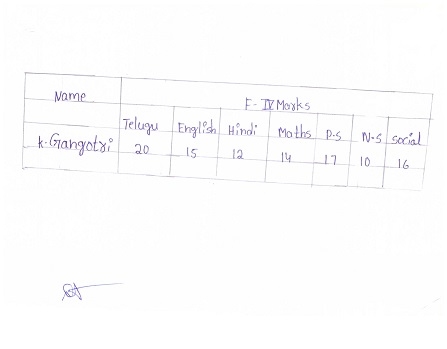 Name F-IV Marks
Telugu English Hindi Maths P.S N.S Social
K.Gangotri 20 15 12 14 17 10 16